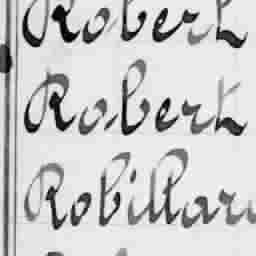 Robert
Robert
Robillard